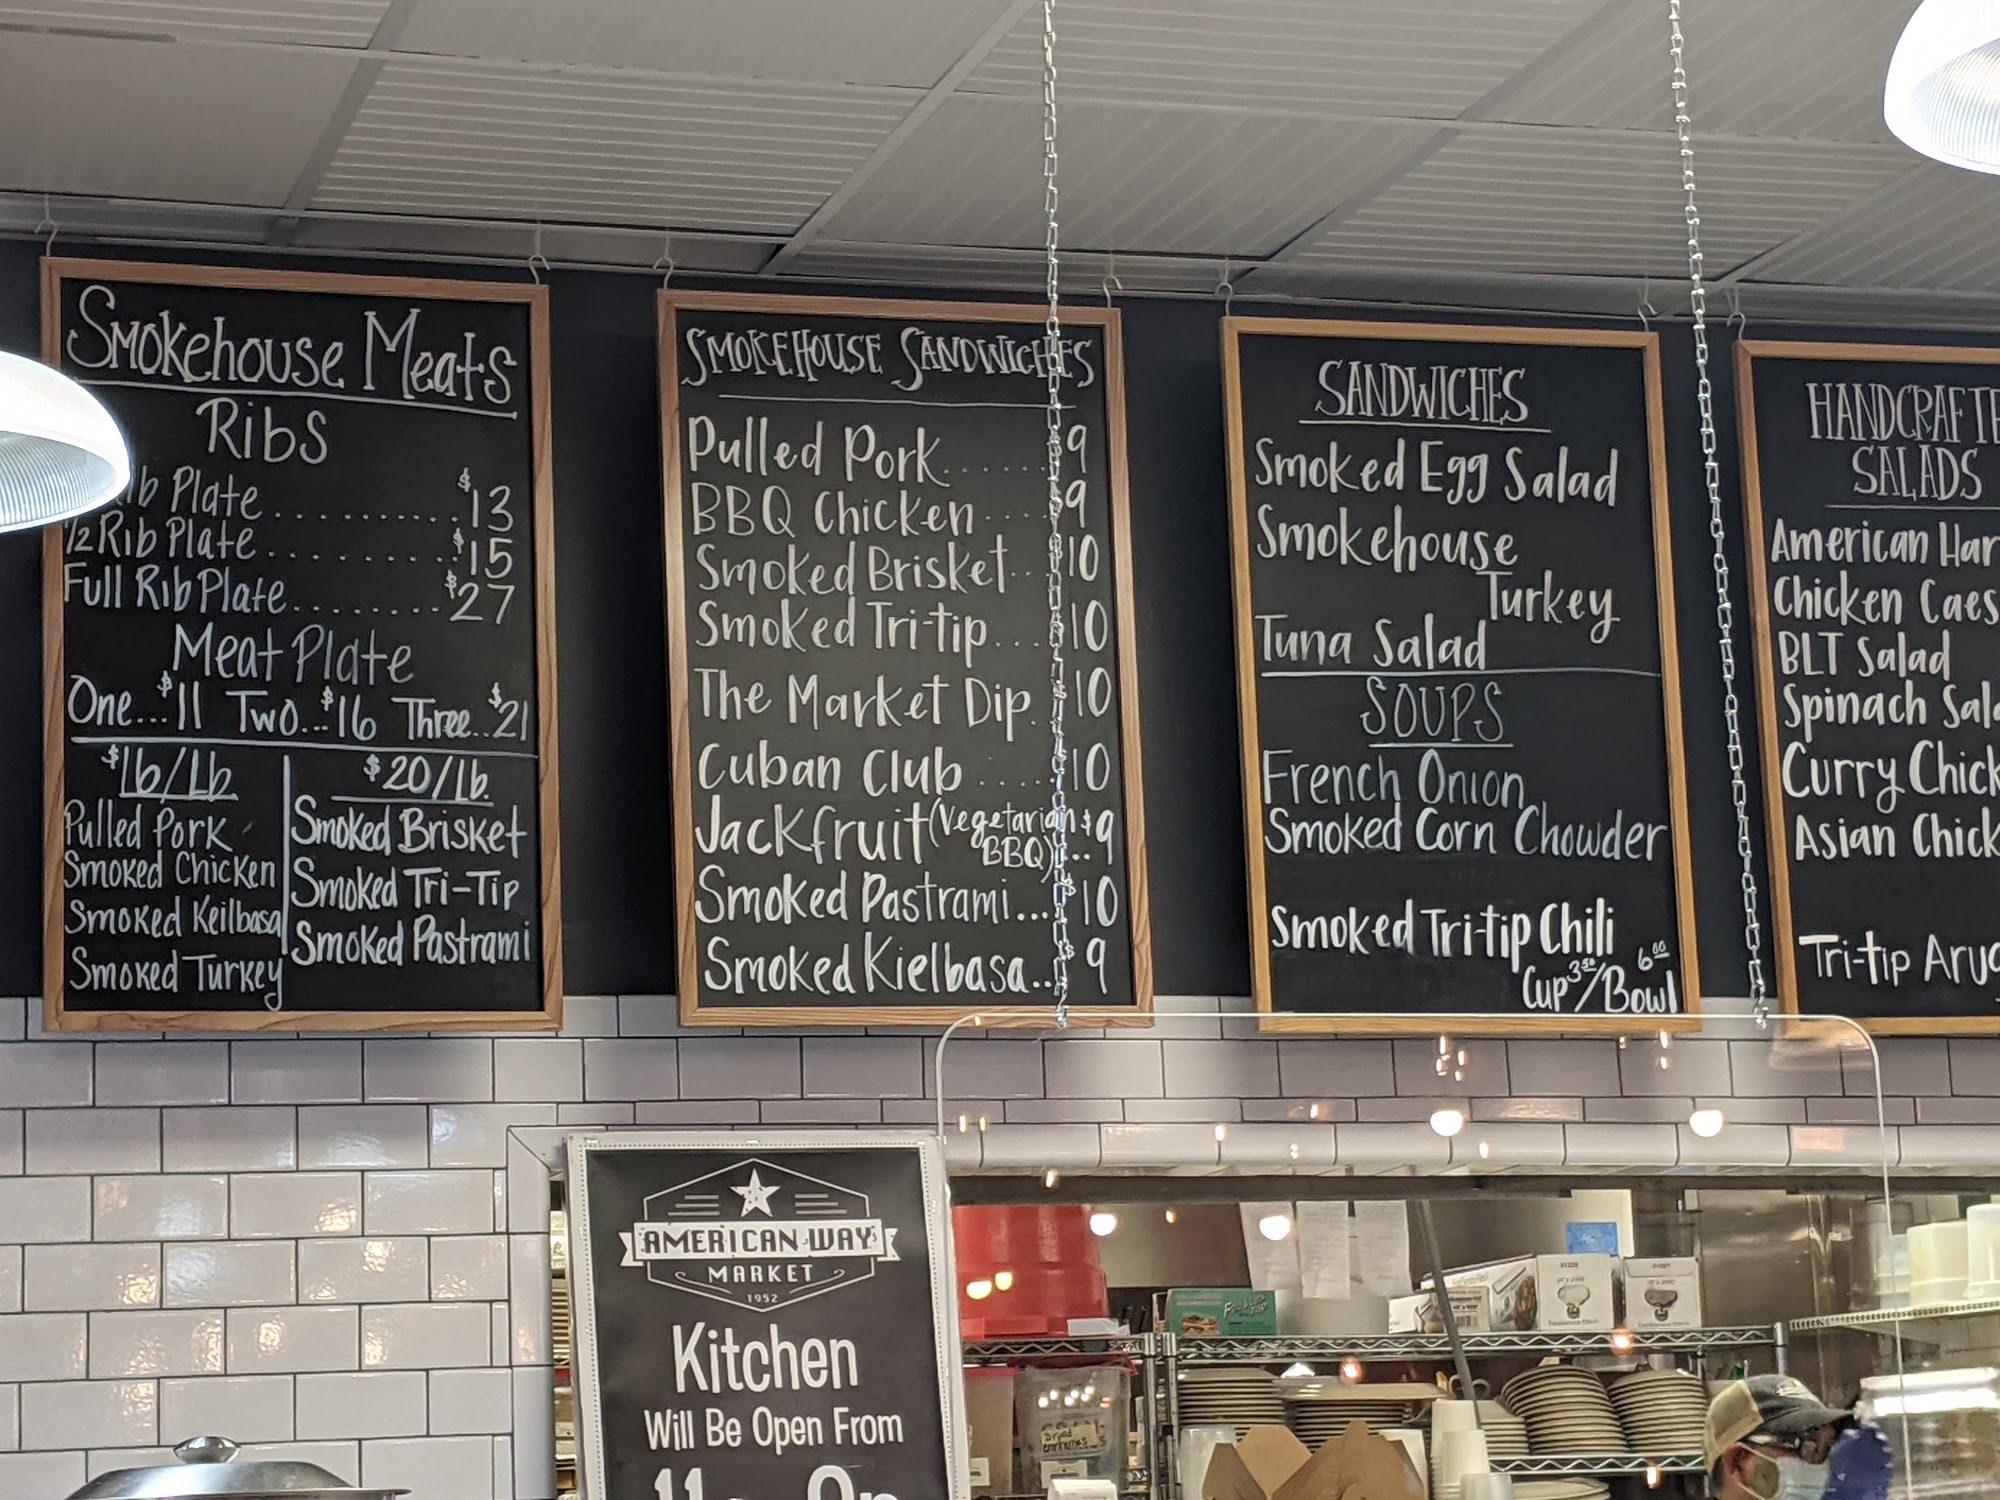 Smokehouse Meats
Ribs
Plate..........$13
1/2 Rib Plate..........$15
Full Rib Plate........$27
Meat Plate
One...$11 Two...$16 Three..$21
$16/Lb
Pulled Pork
Smoked Chicken
Smoked Keilbasa
Smoked Turkey
$20/lb.
Smoked Brisket
Smoked Tri-Tip
Smoked Pastrami
SMOKEHOUSE SANDWICHES
Pulled Pork......9
BBQ Chicken....9
Smoked Brisket..10
Smoked Tri-tip...10
The Market Dip.10
Cuban Club.....10
Jackfruit (Vegetarian BBQ)..$9
Smoked Pastrami...$10
Smoked Kielbasa..$9
SANDWICHES
Smoked Egg Salad
Smokehouse
Turkey
Tuna Salad
SOUPS
French Onion
Smoked Corn Chowder
Smoked Tri-tip Chili
Cup 3.50/Bowl 6.00
SALADS
American
Chicken
BLT Salad
Spinach
Curry
Asian
Tri-tip
AMERICAN WAY
MARKET
1952
Kitchen
Will Be Open From